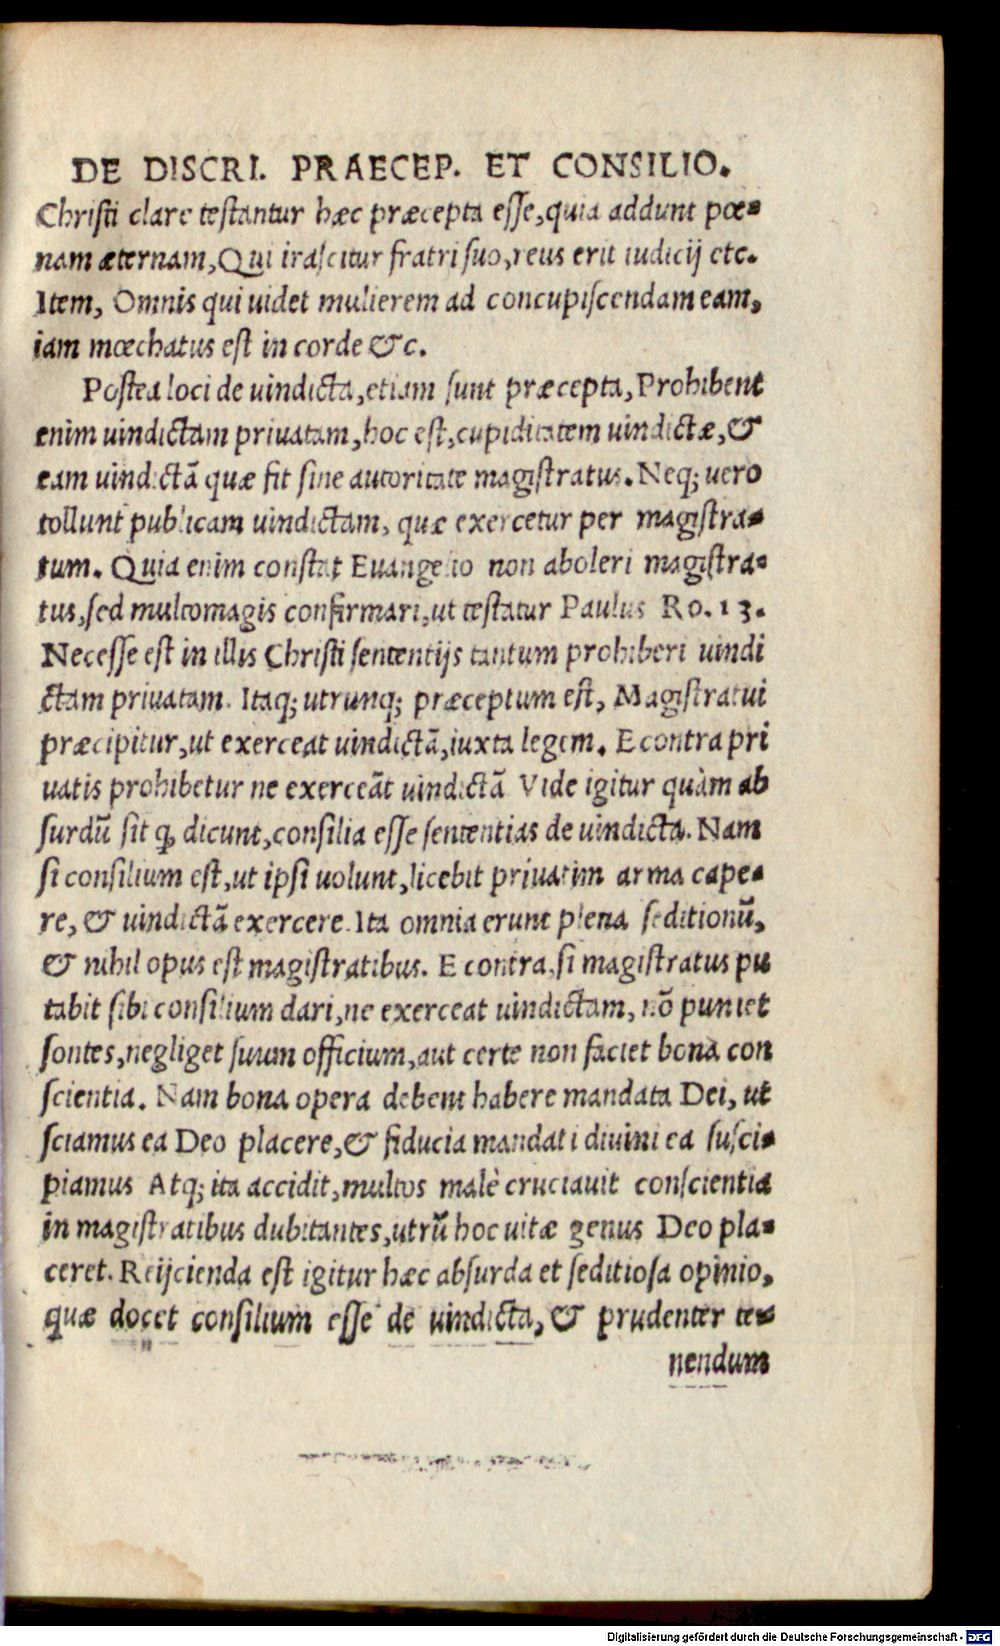 DE DISCRI. PRAECEP. ET CONSILIO.
Christi clare testantur hæc præcepta esse, quia addunt pœ-
nam æternam, Qui irascitur fratri suo, reus erit iudicij etc.
Item, Omnis qui uidet mulierem ad concupiscendam eam,
iam mœchatus est in corde &c.
Postea loci de uindicta, etiam sunt præcepta, Prohibent
enim uindictam priuatam, hoc est, cupiditatem uindictæ, &
eam uindictã quæ fit sine autoritate magistratus. Neq; uero
tollunt publicam uindictam, quæ exercetur per magistra-
tum. Quia enim constat Euangelio non aboleri magistra-
tus, sed multomagis confirmari, ut testatur Paulus Ro. 13.
Necesse est in illis Christi sententijs tantum prohiberi uindi
ctam priuatam. Itaq; utrunq; præceptum est, Magistratui
præcipitur, ut exerceat uindictã, iuxta legem. E contra pri
uatis prohibetur ne exerceãt uindictã Vide igitur quàm ab
surdũ sit ꝙ dicunt, consilia esse sententias de uindicta. Nam
si consilium est, ut ipsi uolunt, licebit priuatim arma cape-
re, & uindictã exercere. Ita omnia erunt plena seditionũ,
& nihil opus est magistratibus. E contra, si magistratus pu
tabit sibi consilium dari, ne exerceat uindictam, nõ puniet
sontes, negliget suum officium, aut certe non faciet bona con
scientia. Nam bona opera debent habere mandata Dei, ut
sciamus ea Deo placere, & fiducia mandati diuini ea susci-
piamus Atq; ita accidit, multos malè cruciauit conscientia
in magistratibus dubitantes, utrũ hoc uitæ genus Deo pla-
ceret. Reijcienda est igitur hæc absurda et seditiosa opinio,
quæ docet consilium esse de uindicta, & prudenter te-
nendum
Digitalisierung gefördert durch die Deutsche Forschungsgemeinschaft - DFG